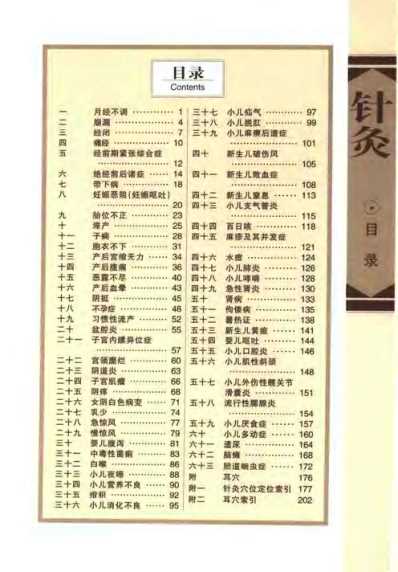 目录
Contents
一 月经不调 …………… 1
二 崩漏 …………… 4
三 经闭 …………… 7
四 痛经 …………… 10
五 经前期紧张综合症
…………… 12
六 绝经前后诸症 …… 14
七 带下病 …………… 18
八 妊娠恶阻(妊娠呕吐)
…………… 20
九 胎位不正 …………… 23
十 滞产 …………… 25
十一 子痫 …………… 28
十二 胞衣不下 …………… 31
十三 产后宫缩无力 …… 34
十四 产后腹痛 …………… 36
十五 恶露不尽 …………… 40
十六 产后血晕 …………… 43
十七 阴挺 …………… 45
十八 不孕症 …………… 48
十九 习惯性流产 ……… 52
二十 盆腔炎 …………… 55
二十一 子宫内膜异位症
…………… 57
二十二 宫颈糜烂 ……… 60
二十三 阴道炎 ………… 63
二十四 子宫肌瘤 ……… 66
二十五 阴痒 …………… 68
二十六 女阴白色病变 …… 71
二十七 乳少 …………… 74
二十八 急惊风 ………… 77
二十九 慢惊风 ………… 79
三十 婴儿腹泻 ………… 81
三十一 中毒性菌痢 …… 83
三十二 白喉 …………… 86
三十三 小儿夜啼 ……… 88
三十四 小儿营养不良 …… 90
三十五 疳积 …………… 92
三十六 小儿消化不良 …… 95
三十七 小儿疝气 ……… 97
三十八 小儿脱肛 ……… 99
三十九 小儿麻痹后遗症
…………… 101
四十 新生儿破伤风
…………… 105
四十一 新生儿败血症
…………… 108
四十二 新生儿窒息 …… 113
四十三 小儿支气管炎
…………… 115
四十四 百日咳 ………… 118
四十五 麻疹及其并发症
…………… 121
四十六 水痘 …………… 124
四十七 小儿肺炎 ……… 126
四十八 小儿哮喘 ……… 128
四十九 急性肾炎 ……… 130
五十 肾病 …………… 133
五十一 佝偻病 ………… 135
五十二 暑热证 ………… 138
五十三 新生儿黄疸 …… 141
五十四 婴儿呕吐 ……… 144
五十五 小儿口腔炎 …… 146
五十六 小儿肌性斜颈
…………… 148
五十七 小儿外伤性髋关节
滑囊炎 ………… 151
五十八 流行性腮腺炎
…………… 154
五十九 小儿厌食症 …… 157
六十 小儿多动症 …… 160
六十一 遗尿 …………… 164
六十二 脑瘫 …………… 168
六十三 肠道蛔虫症 …… 172
附 耳穴 …………… 176
附一 针灸穴位定位索引 177
附二 耳穴索引 ………… 202
针灸
目录